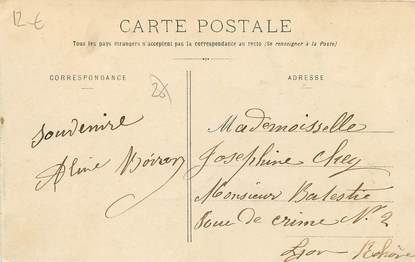 12 €
CARTE POSTALE
Tous les pays étrangers n'acceptent pas la correspondance au recto (Se renseigner à la Poste)
CORRESPONDANCE
souvenire
Aline
ADRESSE
Mademoisselle
Josephine chez
Monsieur Balestié
Rue de crime N° 2
Lyon Rhône